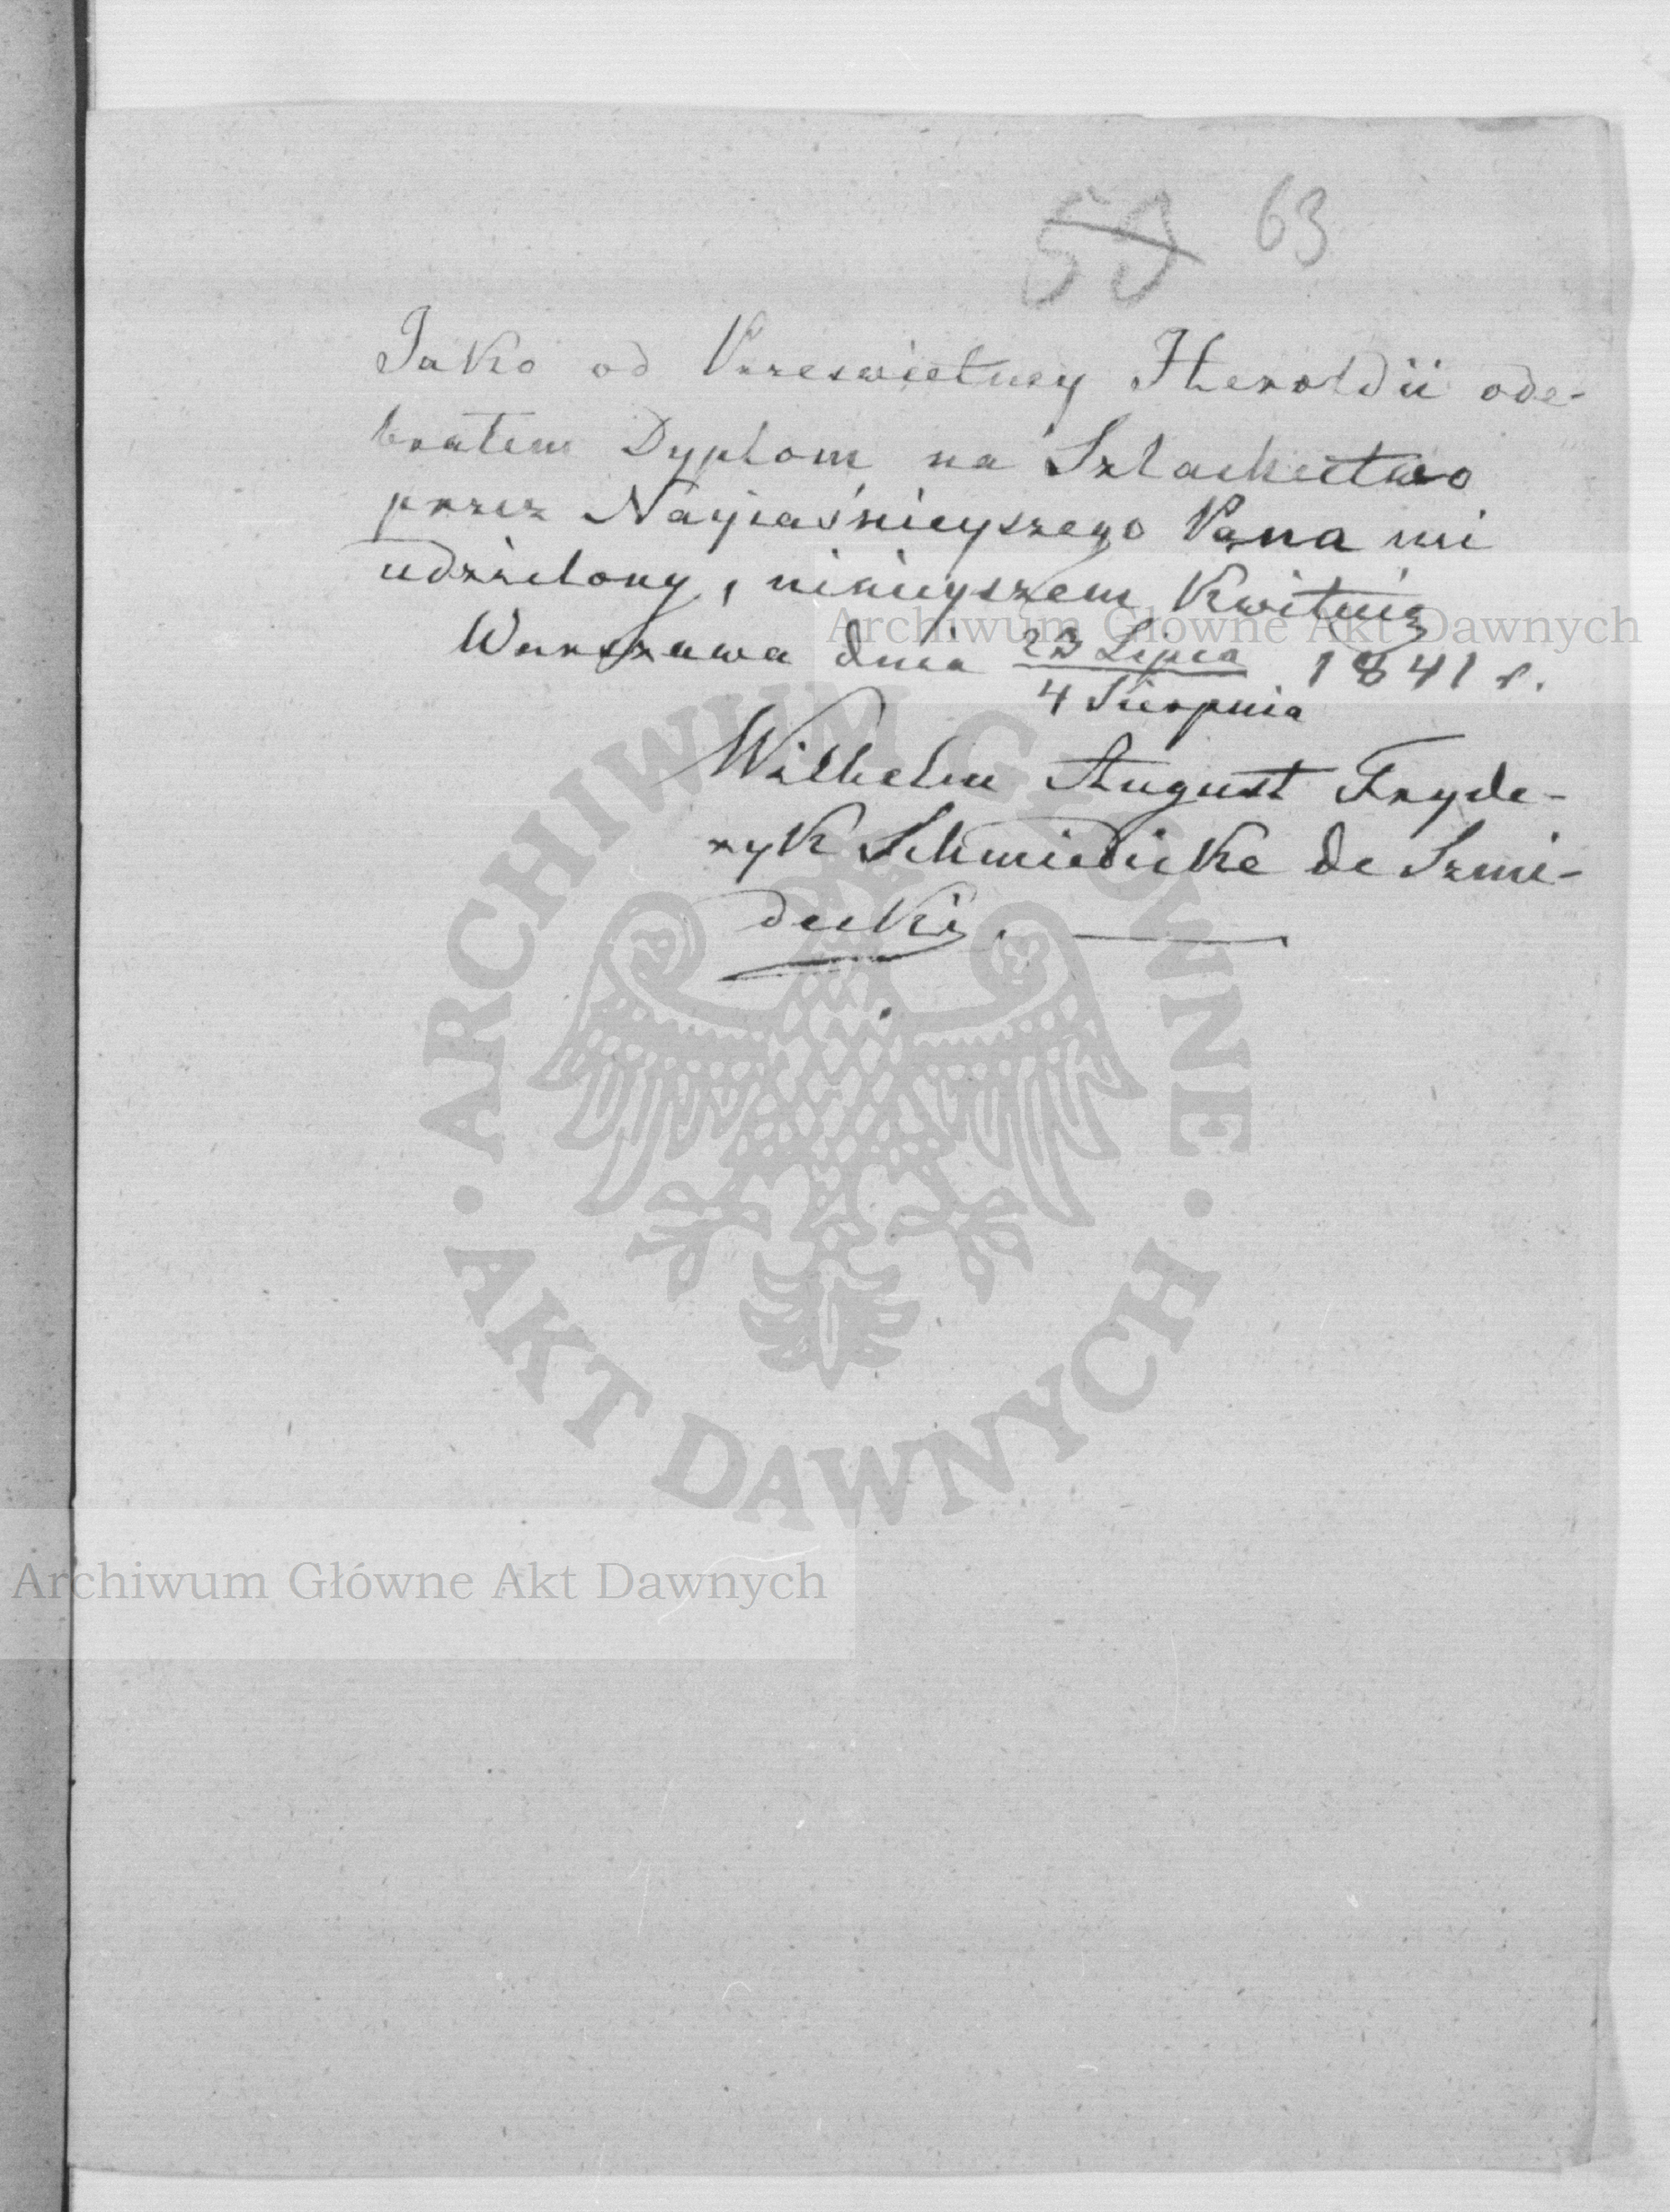 59 63
Jako od Prześwietney Heroldii ode-
brałem Dyplom na Szlachectwo
przez Nayiaśnieyszego Pana mi
udzielony, ninieyszem Kwituię
Warszawa dnia 23 Lipca 1841 r.
4 Sierpnia
Wilhelm August Fryde-
ryk Schmiedicke de Szmi-
decki.
Archiwum Główne Akt Dawnych
ARCHIWUM GŁÓWNE
• AKT DAWNYCH •
Archiwum Główne Akt Dawnych